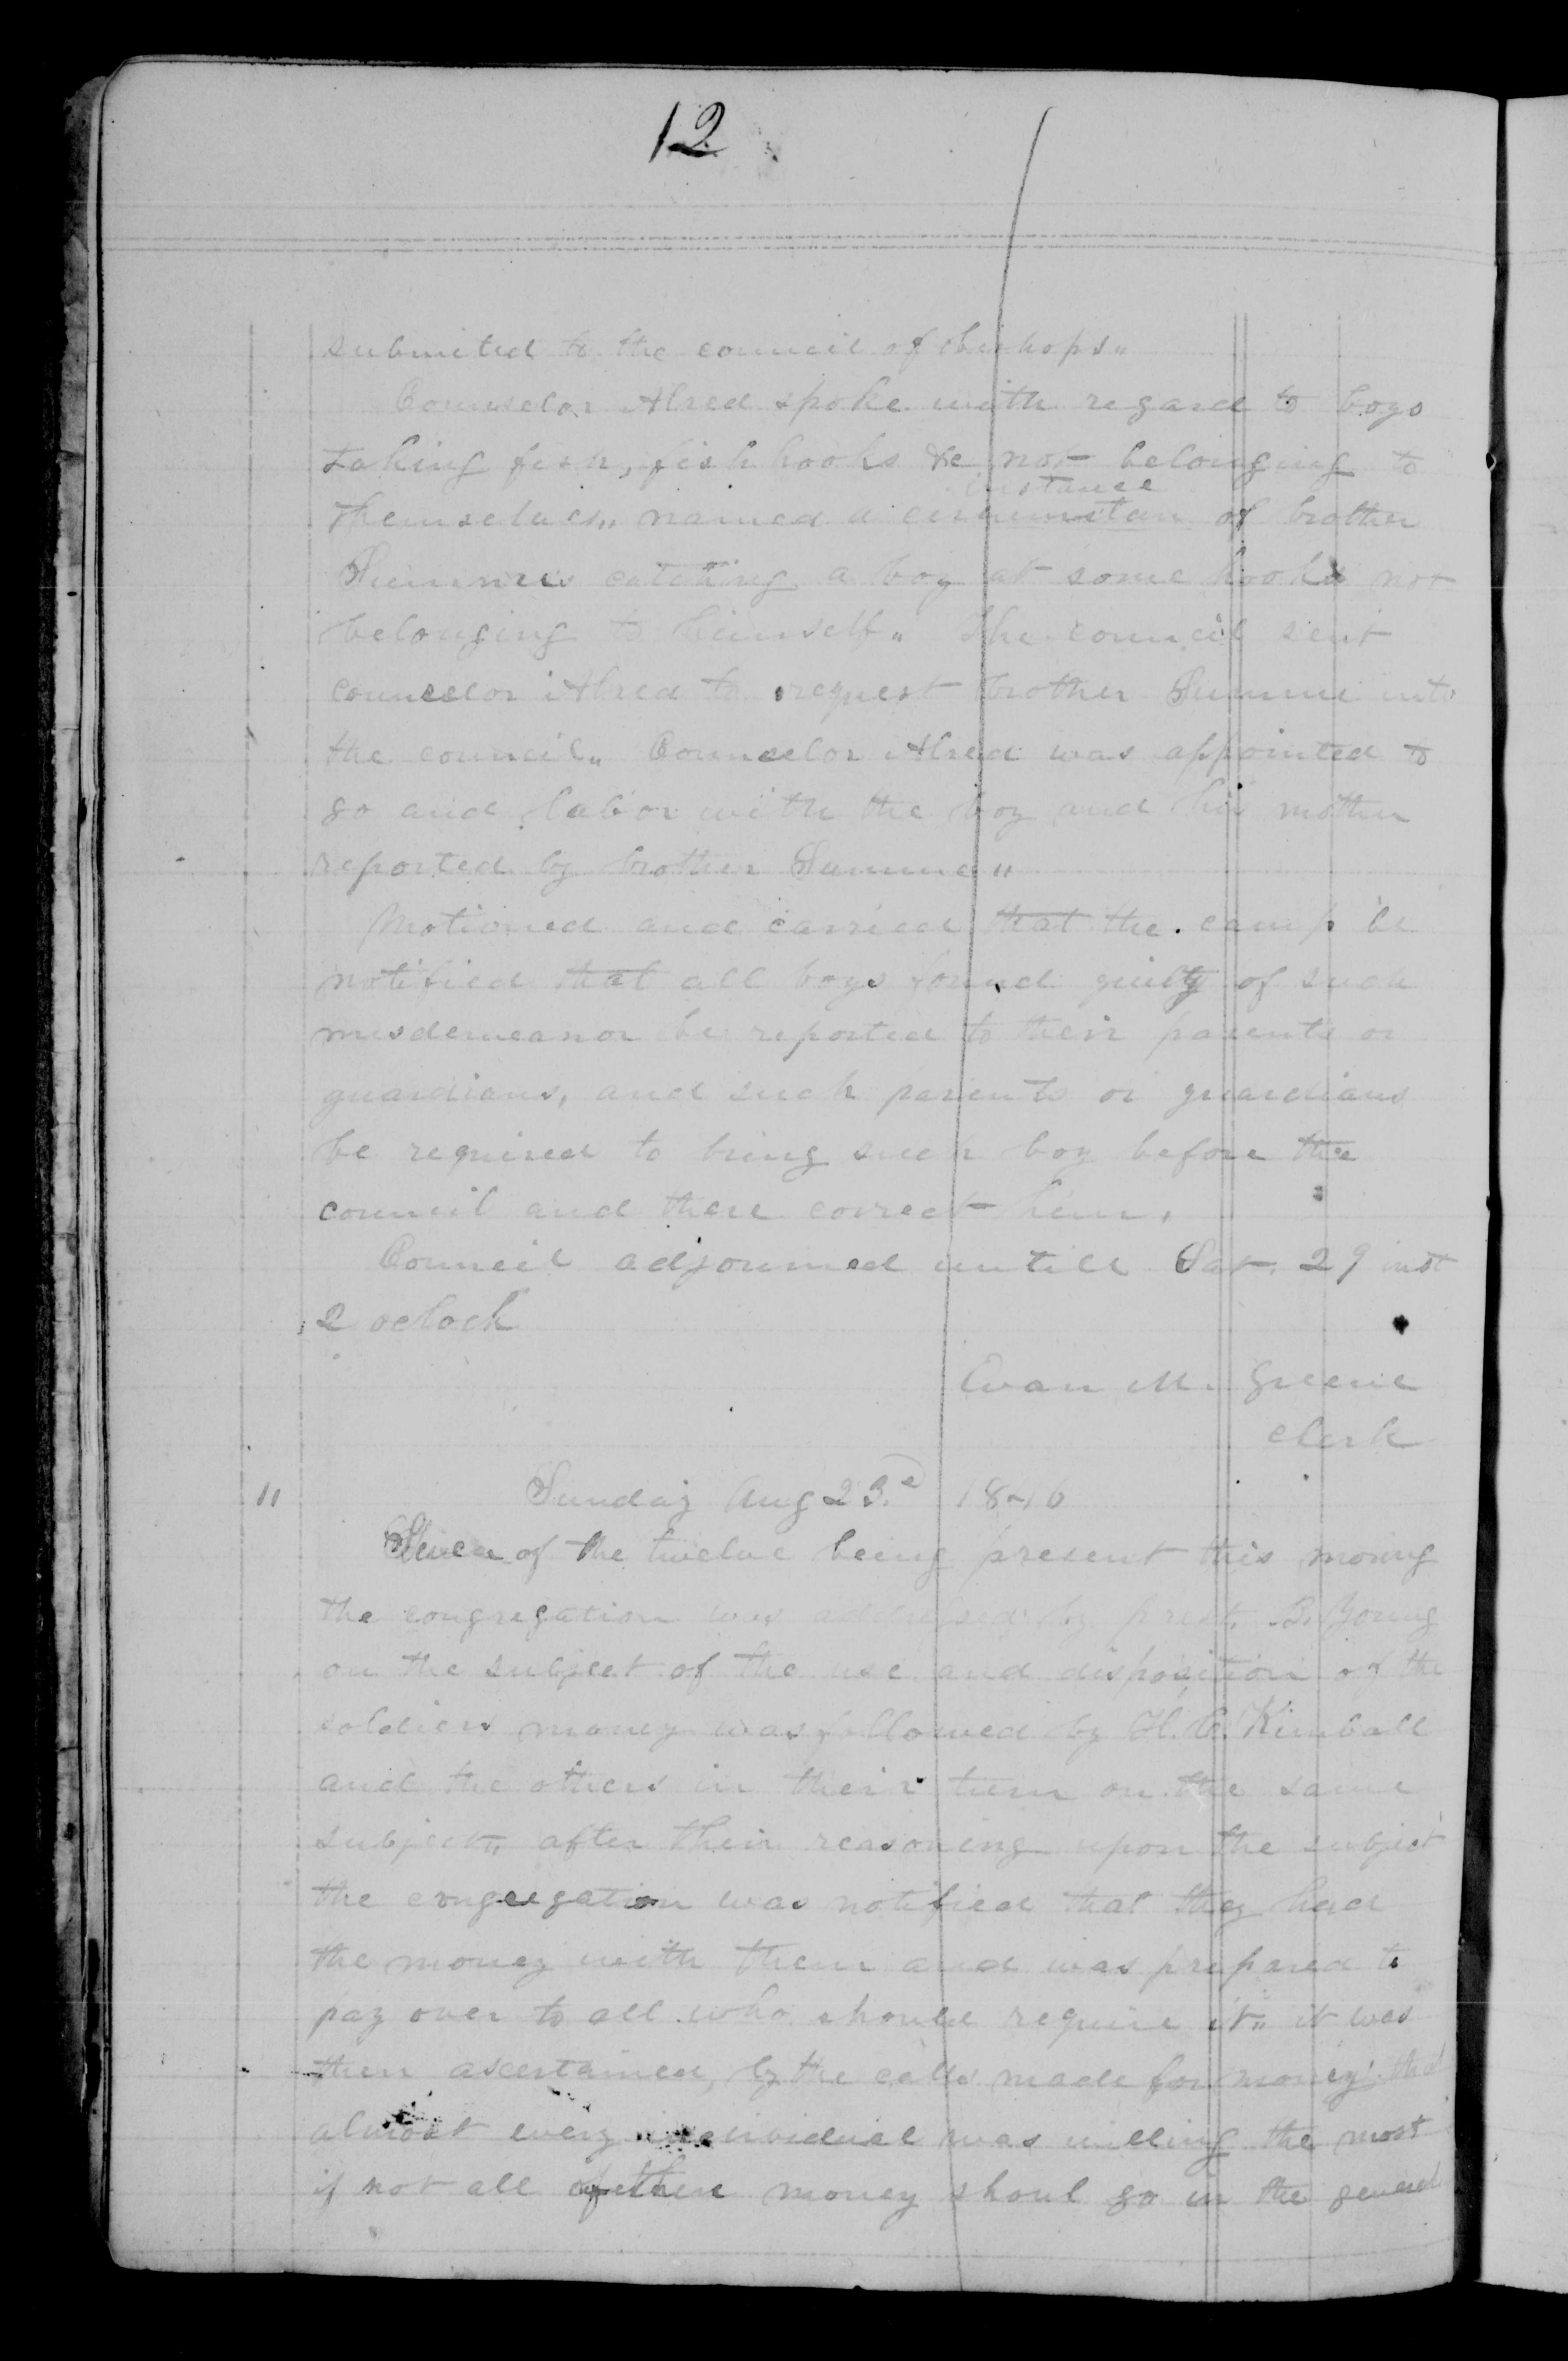 12
submited to the council of bishops"
Counselor Alred spoke with regard to boys
taking fish, fish hooks &c not belonging to
instance
themselves" named a circumstan of brother
catching a boy at some hooks not
belonging to himself" The council sent
counselor Alred to request brother into
the council" Counselor Alred was appointed to
go and labor with the boy and his mother
reported by brother
Motioned and carried that the camp be
notified that all boys found guilty of such
misdemeanor be reported to their parents or
guardians, and such parents or guardians
be required to bring such boy before the
council and there correct him.
Council adjourned untill Sat. 29 inst
2 oclock
Evan M. Greene
Clerk
11 Sunday Aug 23.d 1846
Seven of the twelve being present this morning
the congregation was addressed by prest. B. Young
on the subject of the use and disposition of the
soldiers money was followed by H. C. Kimball
and the others in their turn on the same
subject" after their reasoning upon the subject
the congregation was notified that they had
the money with them and was prepared to
pay over to all who should require it" it was
then ascertained, by the calls made for money that
almost every individual was willing the most
if not all of their money shoul go in the general